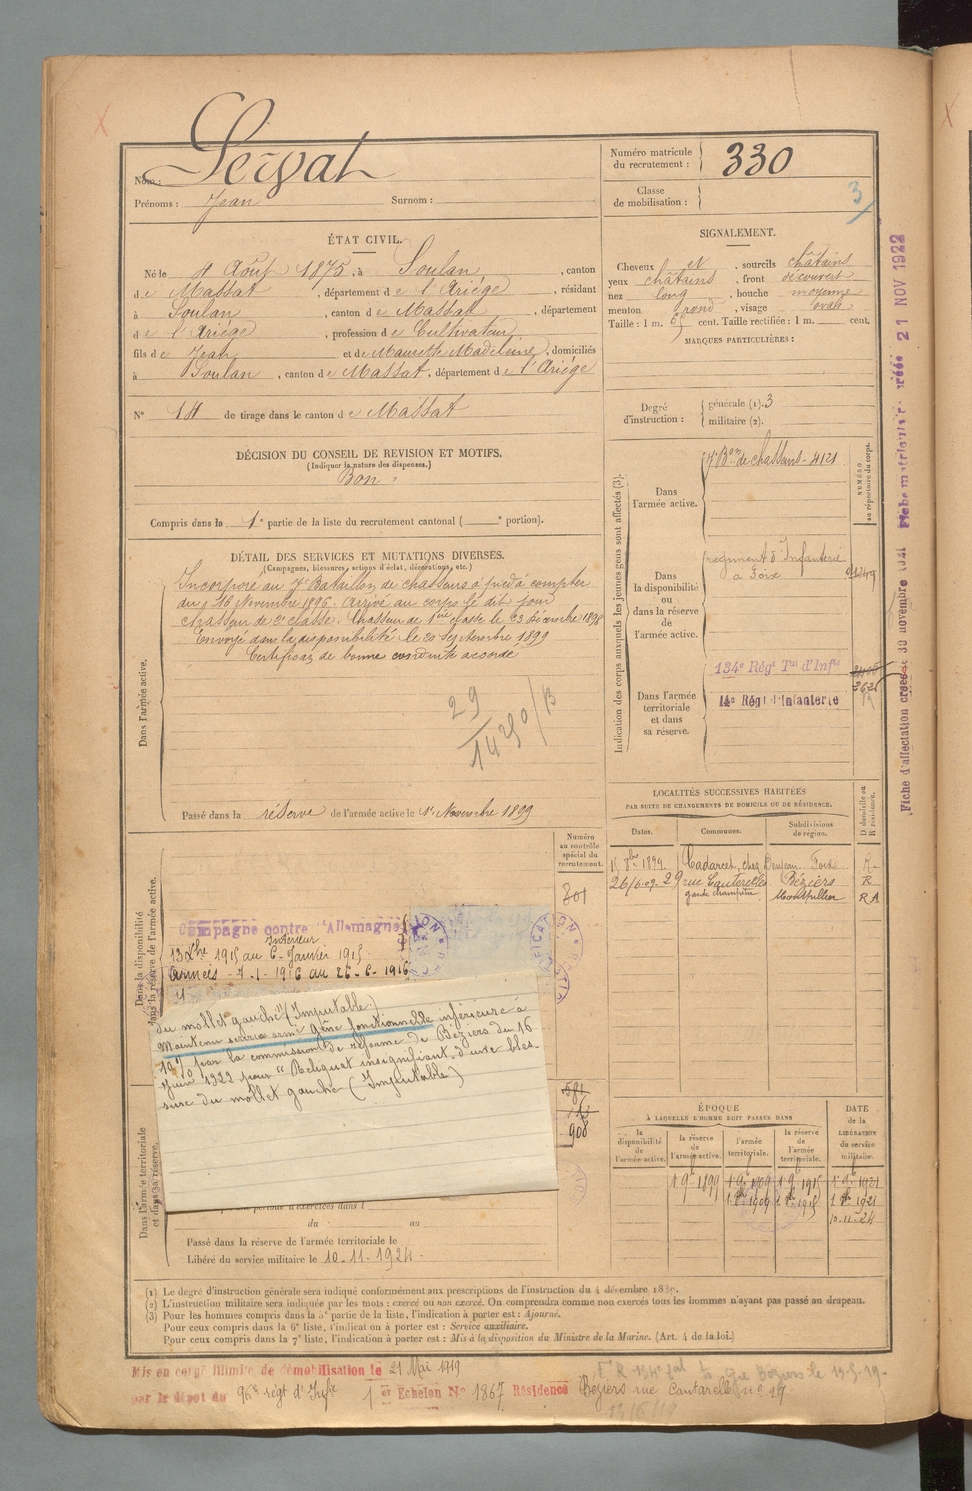 Nom: Servat
Prénoms : Jean Surnom :
Numéro matricule du recrutement : 330
Classe de mobilisation :
3
ÉTAT CIVIL.
Né le 4 Août 1875, à Soulan, canton
de Massat, département de l'Ariége, résidant
à Soulan, canton de Massat, département
de l'Ariége, profession de Cultivateur
fils de Jean et de Maurette Madeleine, domiciliés
à Soulan, canton de Massat, département de l'Ariége
N° 14 de tirage dans le canton de Massat
SIGNALEMENT.
Cheveux et, sourcils châtains
yeux châtains, front découvert
nez long, bouche moyenne
menton rond, visage ovale
Taille : 1 m. 65 cent. Taille rectifiée : 1 m. cent.
MARQUES PARTICULIÈRES :
Degré d'instruction : générale (1). 3
militaire (2).
DÉCISION DU CONSEIL DE REVISION ET MOTIFS.
(Indiquer la nature des dispenses.)
Bon
Compris dans la 1e partie de la liste du recrutement cantonal ( e portion).
DÉTAIL DES SERVICES ET MUTATIONS DIVERSES.
(Campagnes, blessures, actions d'éclat, décorations, etc.)
Dans l'armée active.
Incorporé au 7e Bataillon de chasseurs à pied à compter
du 16 Novembre 1896. Arrivé au corps le dit jour
chasseur de 2e classe. Chasseur de 1ère classe le 23 décembre 1898
Envoyé dans la disponibilité le 20 Septembre 1899
Certificat de bonne conduite accordé
29
1430/B
Passé dans la réserve de l'armée active le 1er Novembre 1899
Indication des corps auxquels les jeunes gens sont affectés (3).
NUMÉRO au répertoire du corps.
Dans l'armée active.
7e Bon de chasseurs - 4121
Dans la disponibilité ou dans la réserve de l'armée active.
régiment d'Infanterie
à Foix
Dans l'armée territoriale et dans sa réserve.
134e Régt Tal d'Infie
14e Régt d'Infanterie
LOCALITÉS SUCCESSIVES HABITÉES
PAR SUITE DE CHANGEMENTS DE DOMICILE OU DE RÉSIDENCE.
D domicile ou R résidence.
Dates. Communes. Subdivisions de région.
Cadarcet, chez Foix R.
26/6-09 29 rue Cauterelles Béziers R
garde champêtre Montpellier RA
Numéro au contrôle spécial du recrutement.
201
Dans la disponibilité et dans la réserve de l'armée active.
Campagne contre l'Allemagne
Intérieur
13 Xbre 1915 au 6 Janvier 1915
Armées - 7-1-1916 au 26-6-1916
du mollet gauche" (Imputable)
Maintenu service armé gêne fonctionnelle inférieure à
10 % par la commission de réforme de Béziers du 16
Juin 1922 pour " Reliquat insignifiant d'une bles-
sure du mollet gauche (Imputable)
581
908
Dans l'armée territoriale et dans sa réserve.
du au
Passé dans la réserve de l'armée territoriale le
Libéré du service militaire le 10-11-1924.
ÉPOQUE
À LAQUELLE L'HOMME DOIT PASSER DANS
DATE de la LIBÉRATION du service militaire.
la disponibilité de l'armée active.
la réserve de l'armée active.
l'armée territoriale.
la réserve de l'armée territoriale.
1 9e 1899 1 9e 1909 1 9e 1915 1 9e 1921
1 1909 1 1915 1 1921
10-11-24
(1) Le degré d'instruction générale sera indiqué conformément aux prescriptions de l'instruction du 4 décembre 1889.
(2) L'instruction militaire sera indiquée par les mots : exercé ou non exercé. On comprendra comme non exercés tous les hommes n'ayant pas passé au drapeau.
(3) Pour les hommes compris dans la 5e partie de la liste, l'indication à porter est : Ajourné.
Pour ceux compris dans la 6e liste, l'indication à porter est : Service auxiliaire.
Pour ceux compris dans la 7e liste, l'indication à porter est : Mis à la disposition du Ministre de la Marine. (Art. 4 de la loi.)
Mis en congé illimité de démobilisation le 21 Mai 1919
par le dépôt du 96e régt d'Infie 1er Echelon N° 1867 Résidence Béziers rue Cantarelle n° 29
13/6/19
Fiche d'affectation créée 30 novembre Fiche matricule créée 21 NOV 1922